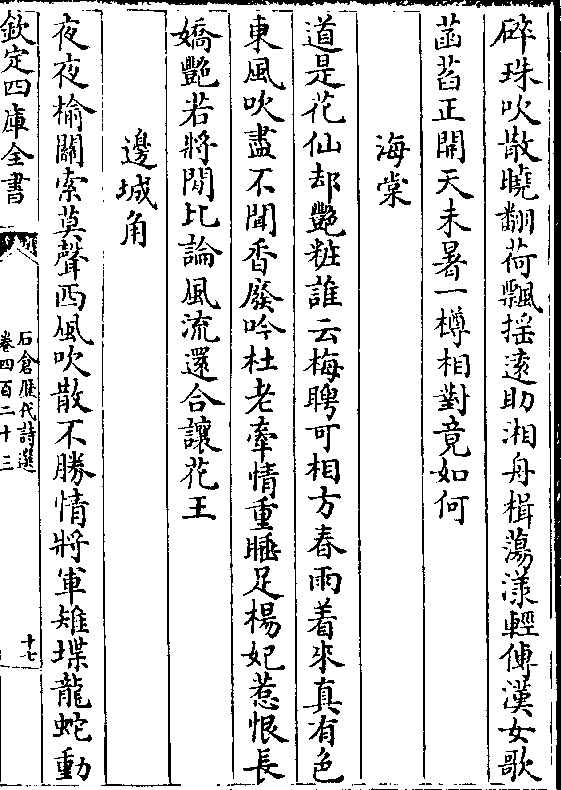 碎珠吹散曉翻荷飄揺遠助湘舟楫蕩漾輕傳漢女歌
菡萏正開天未暑一樽相對竟如何
海棠
道是花仙却艷粧誰云梅聘可相方春雨着來真有色
東風吹盡不聞香廢吟杜老牽情重睡足楊妃惹恨長
嬌艷若將閒比論風流還合讓花王
邊城角
夜夜榆關索莫聲西風吹散不勝情將軍雉堞龍蛇動
欽定四庫全書
石倉歴代詩選
卷四百二十三
十七